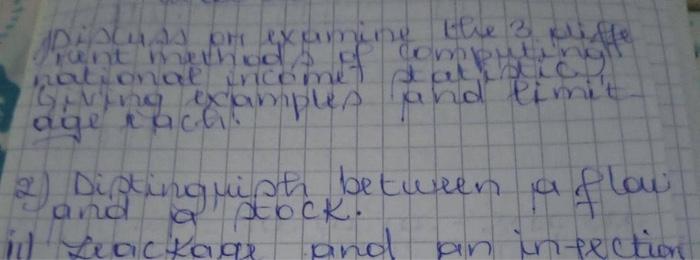 Discuss or examine the 3 diffe
rent methods of computing
national income statistics
Giving examples and limit-
age each.
2) Distinguish between a flow
and a stock.
ii) Leackage and an injection